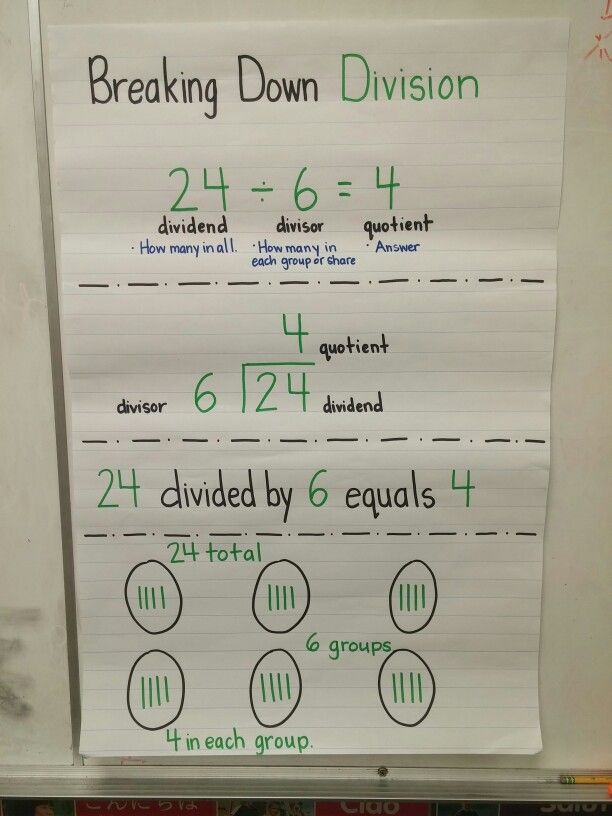 Breaking Down Division
24 ÷ 6 = 4
dividend divisor quotient
· How many in all. · How many in each group or share · Answer
4 quotient
divisor 6 24 dividend
24 divided by 6 equals 4
24 total
6 groups
4 in each group.
こんにちは Ciao